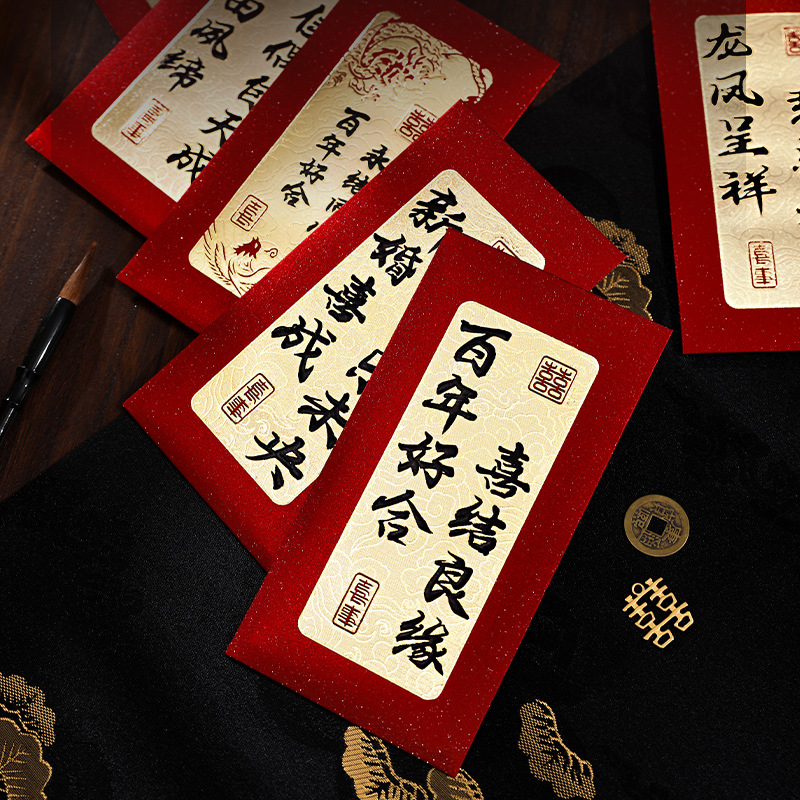 天成
缔
喜事
囍
永结同
百年好合
喜
新婚喜成
未央
喜事
囍
喜结良缘
百年好合
喜事
龙凤呈祥
喜事
囍